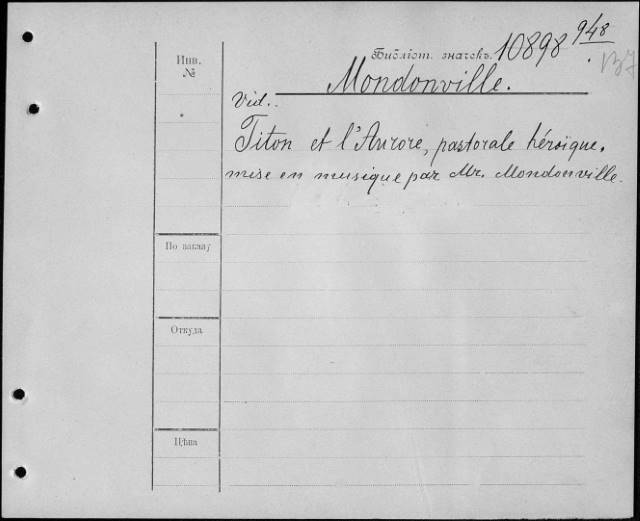 Инв.
№
Библіот. значекъ. 10898 948
Mondonville.
Vid.
Titon et l'Aurore, pastorale héroïque.
mise en musique par Mr. Mondonville.
По накладу
Откуда
Цѣна